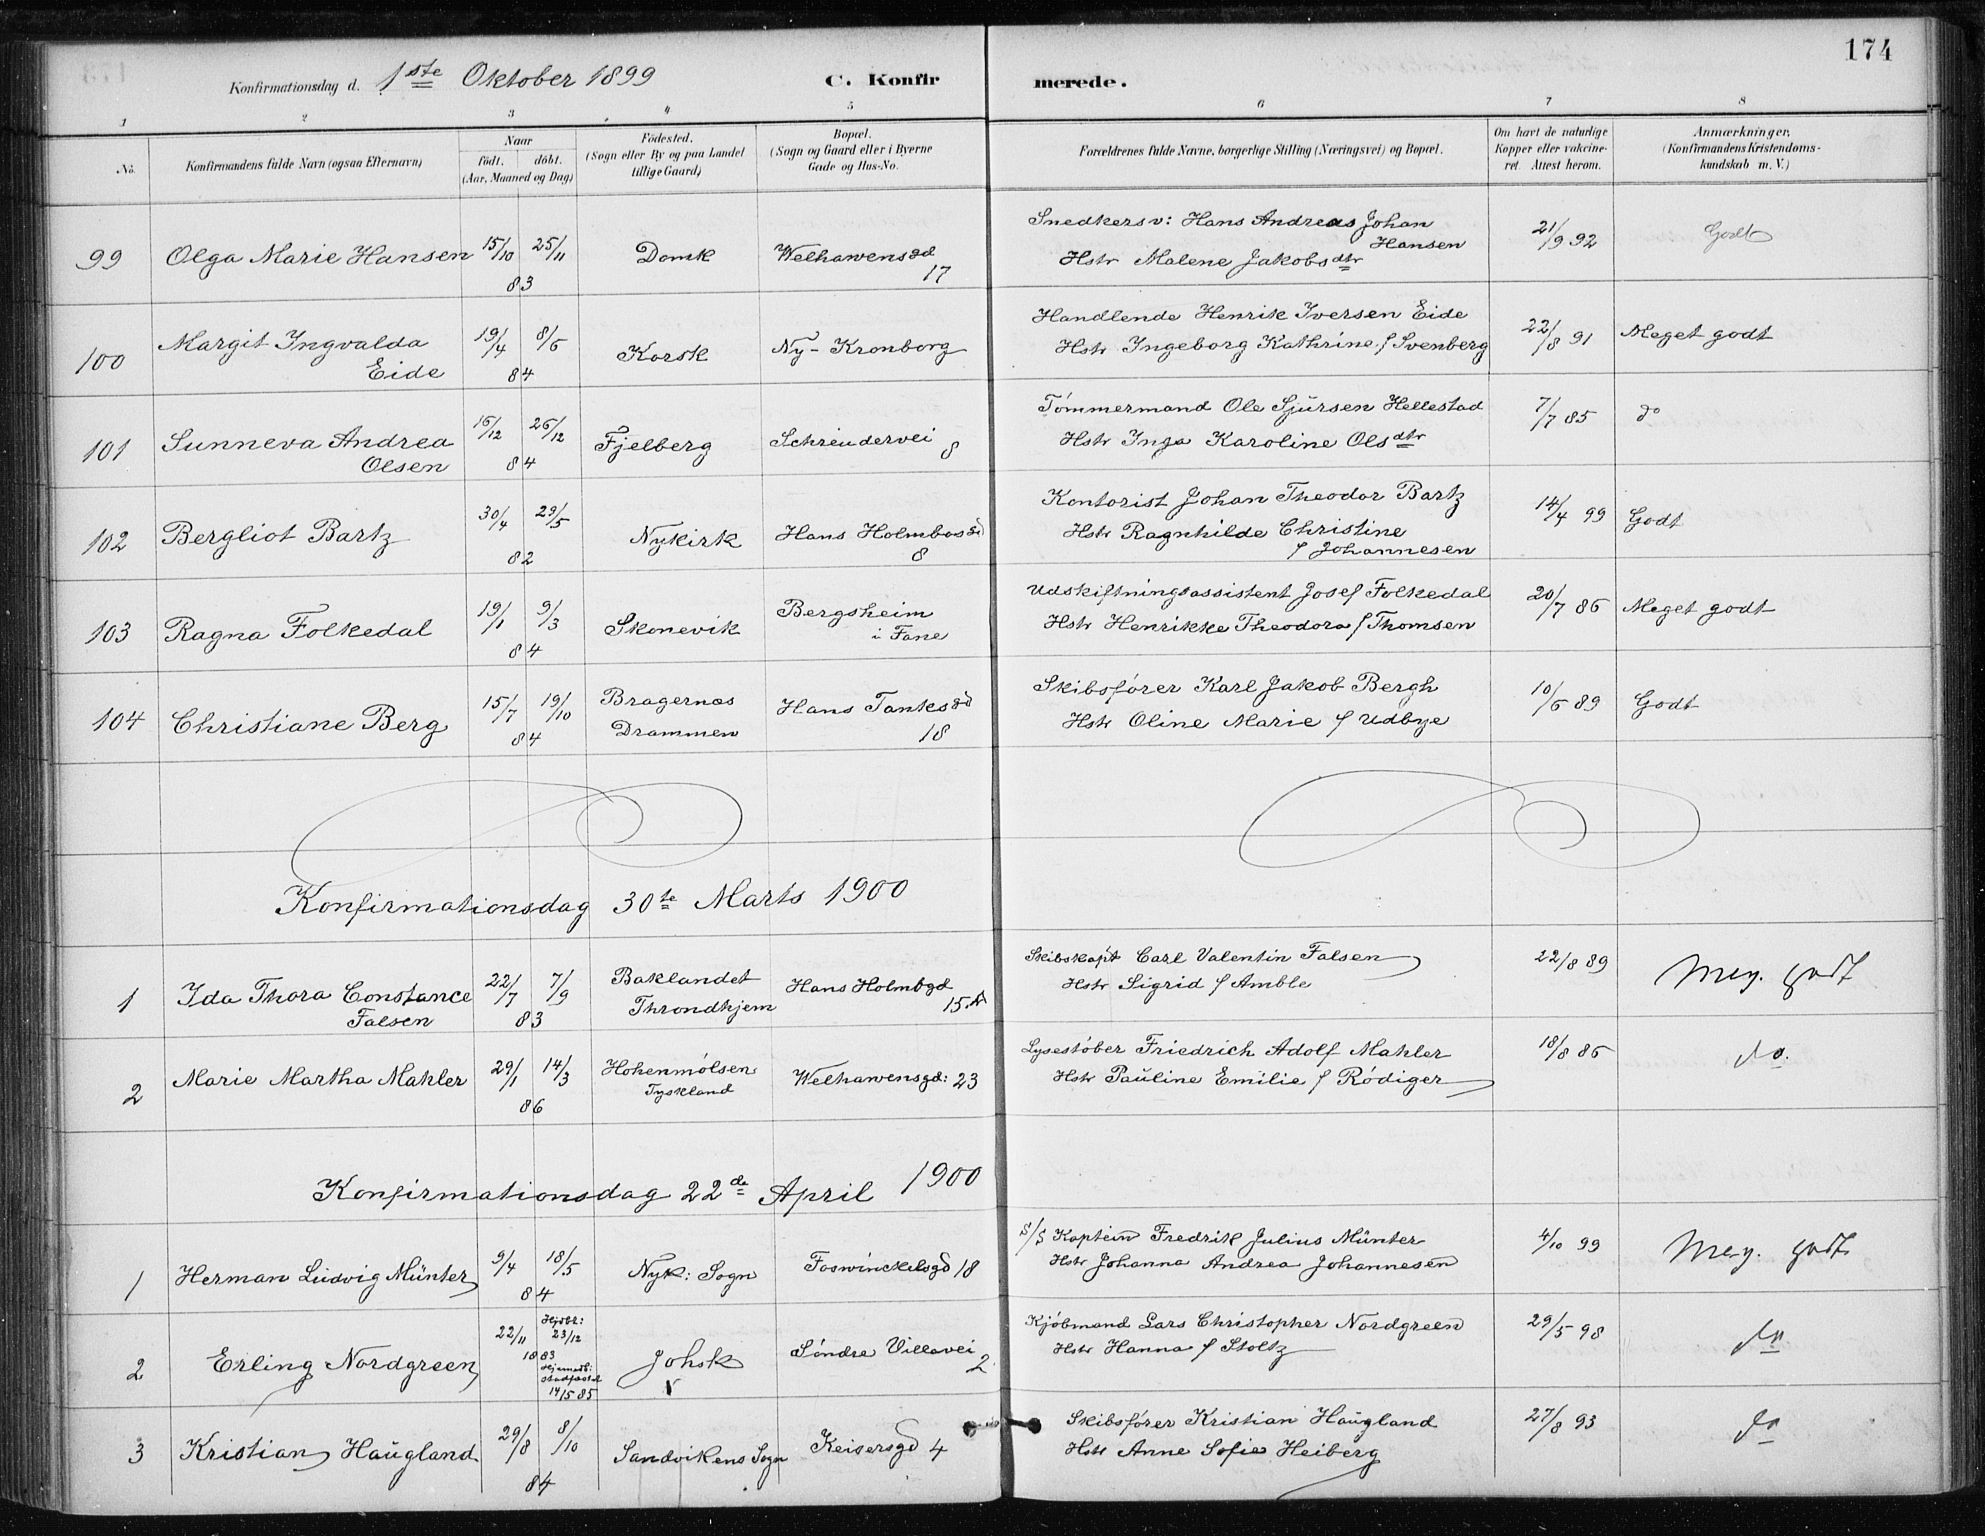 174
Konfirmationsdag d. 1ste Oktober 1899 C. Konfirmerede.
1 2 3 4 5 6 7 8
No. Konfirmandens fulde Navn (ogsaa Efternavn) Naar født. døbt. (Aar, Maaned og Dag) Fødested. (Sogn eller By og paa Landet tillige Gaard) Bopæl. (Sogn og Gaard eller i Byerne Gade og Hus-No. Forældrenes fulde Navne, borgerlige Stilling (Næringsvei) og Bopæl. Om havt de naturlige Kopper eller vakcineret. Attest herom. Anmærkninger. (Konfirmandens Kristendomskundskab m. V.)
99 Olga Marie Hansen 15/10 25/11 83 Domk Welhavensgd 17 Snedkersv: Hans Andreas Johan Hansen
Hstr Malene Jakobsdtr 21/9 92 Godt
100 Margit Ingvalda Eide 19/4 8/6 84 Korsk Ny-Kronborg Handlende Henrik Iversen Eide
Hstr Ingeborg Kathrine f Svenberg 22/8 91 Meget godt
101 Sunneva Andrea Olsen 16/12 26/12 84 Fjelberg Schreudervei 8 Tømmermand Ole Sjursen Hellestad
Hstr Inga Karoline Olsdtr 7/7 85 do
102 Bergliot Bartz 30/4 29/5 82 Nykirk Hans Holmbosgd 8 Kontorist Johan Theodor Bartz
Hstr Ragnhilde Christine f Johannesen 14/4 99 Godt
103 Ragna Folkedal 19/1 9/3 84 Skonevik Bergsheim i Fane Udskiftningsassistent Josef Folkedal
Hstr Henrikke Theodora f Thomsen 20/7 86 Meget godt
104 Christiane Berg 15/7 19/10 84 Bragernæs Drammen Hans Tanksgd 18 Skibsfører Karl Jakob Bergh
Hstr Oline Marie f Udbye 10/6 89 Godt
Konfirmationsdag 30te Marts 1900
1 Ida Thora Constance Falsen 22/7 7/9 83 Baklandet Throndhjem Hans Holmbgd 15. Skibskapt Carl Valentin Falsen
Hstr Sigrid f Amble 22/8 89 Meg. godt
2 Marie Martha Mahler 29/1 14/3 86 Hohenmølsen Tyskland Welhavensgd: 23 Lysestøber Friedrich Adolf Mahler
Hstr Pauline Emilie f Rödiger 18/8 86 do.
Konfirmationsdag 22de April 1900
1 Herman Ludvig Münter 9/4 18/5 84 Nyk: Sogn Foswinckelsgd 18 S/S Kaptein Fredrik Julius Münter
Hstr Johanna Andrea Johannesen 4/10 99 Meg. godt
2 Erling Nordgreen 22/11 23/12 1883 14/5 85 Johsk Søndre Villavei 2 Kjøbmand Lars Christopher Nordgreen
Hstr Hanna f Stoltz 29/5 98 do
3 Kristian Haugland 29/8 8/10 84 Sandvikens Sogn Keisersgd 4 Skibsfører Kristian Haugland
Hstr Anne Sofie Heiberg 27/8 93 do